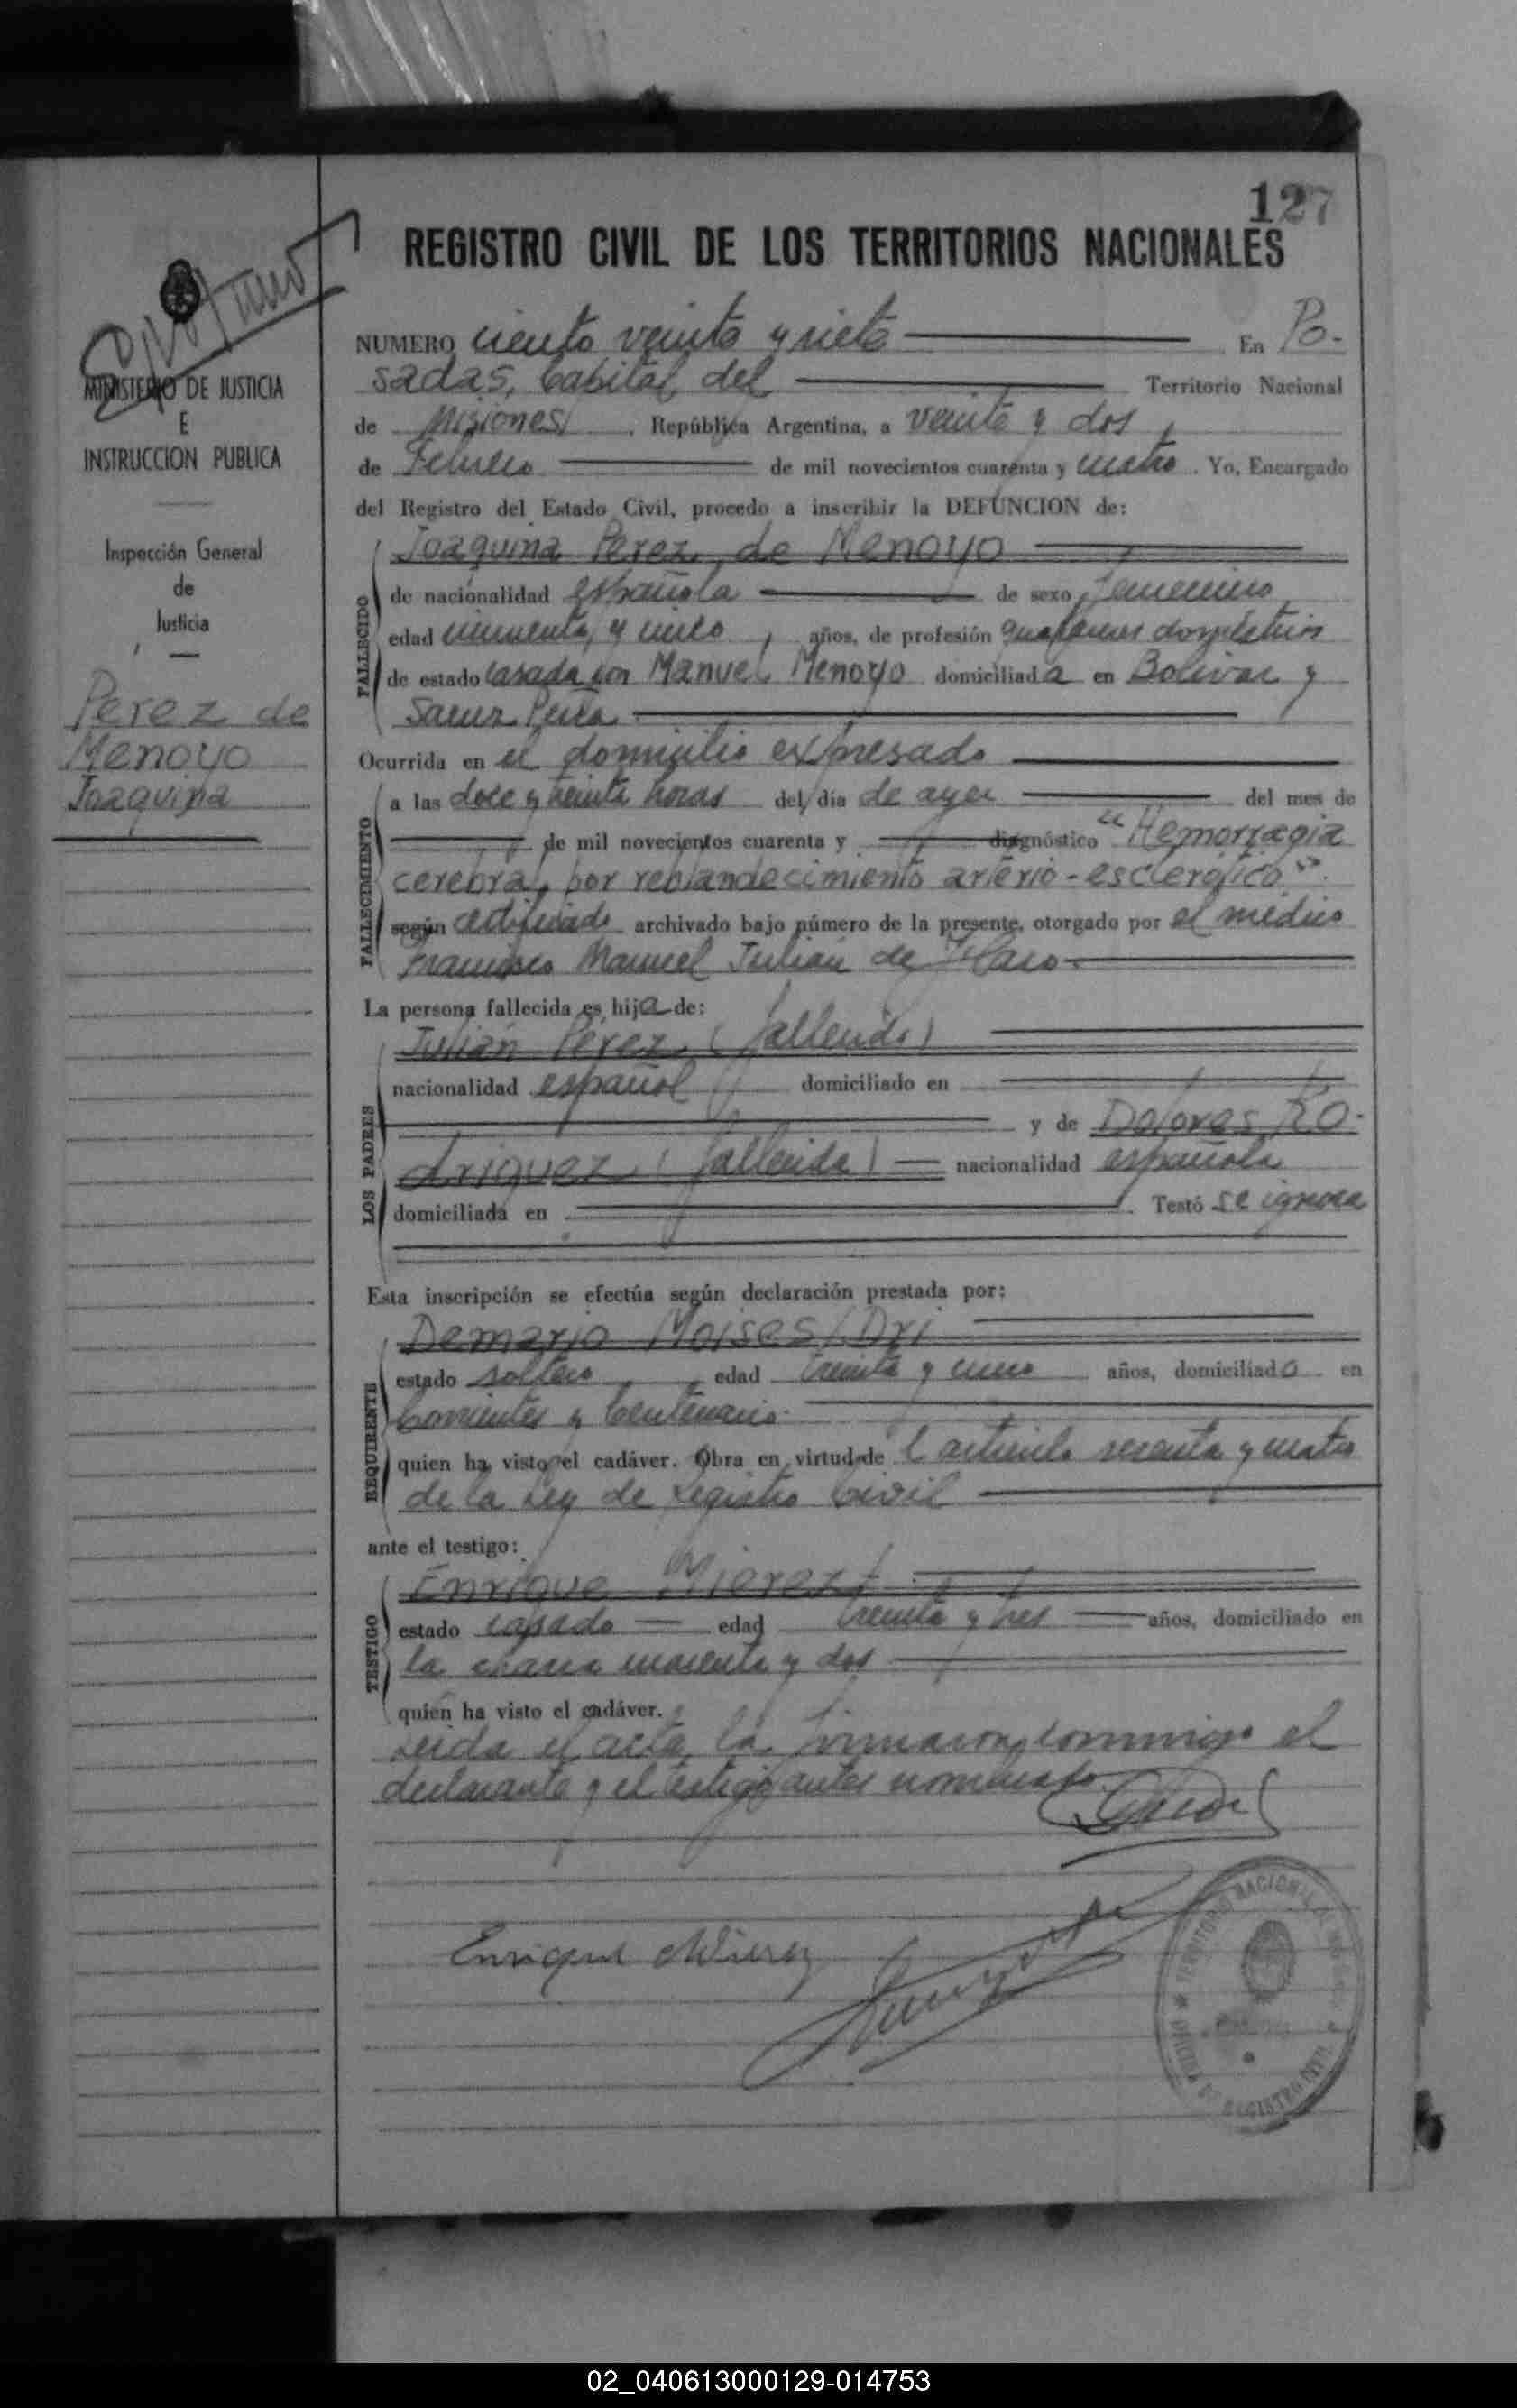 127
REGISTRO CIVIL DE LOS TERRITORIOS NACIONALES
MINISTERIO DE JUSTICIA
E
INSTRUCCION PUBLICA
Inspección General
de
Justicia
Perez de
Menoyo
Joaquina
NUMERO ciento veinte y siete En Po-
sadas, Capital del Territorio Nacional
de Misiones, República Argentina, a veinte y dos
de Febrero de mil novecientos cuarenta y cuatro. Yo, Encargado
del Registro del Estado Civil, procedo a inscribir la DEFUNCION de:
FALLECIDO
Joaquina Perez de Menoyo
de nacionalidad española de sexo femenino
edad cincuenta y cinco, años, de profesión quehaceres domésticos
de estado casada con Manuel Menoyo domiciliada en Bolivar y
Saenz Peña
Ocurrida en el domicilio expresado
FALLECIMIENTO
a las doce y treinta horas del día de ayer del mes de
de mil novecientos cuarenta y diagnóstico "Hemorragia
cerebral, por reblandecimiento arterio-esclerótico".
según certificado archivado bajo número de la presente, otorgado por el médico
Francisco Manuel Julián de Haro
La persona fallecida es hija de:
LOS PADRES
Julián Pérez (fallecido)
nacionalidad español domiciliado en
y de Dolores Ro-
driguez (fallecida) nacionalidad española
domiciliada en Testó se ignora
Esta inscripción se efectúa según declaración prestada por:
REQUIRENTE
Demario Moises Dri
estado soltero edad treinta y uno años, domiciliado en
Corrientes y Centenario.
quien ha visto el cadáver. Obra en virtud de l artículo sesenta y cuatro
de la Ley de Registro Civil
ante el testigo:
TESTIGO
Enrique Mierez
estado casado edad treinta y tres años, domiciliado en
la chacra cuarenta y dos
quién ha visto el cadáver.
Leída el acta, la firmaron conmigo el
declarante y el testigo antes nombrado.
Enrique Mierez
TERRITORIO NACIONAL
REGISTRO CIVIL
02_040613000129-014753